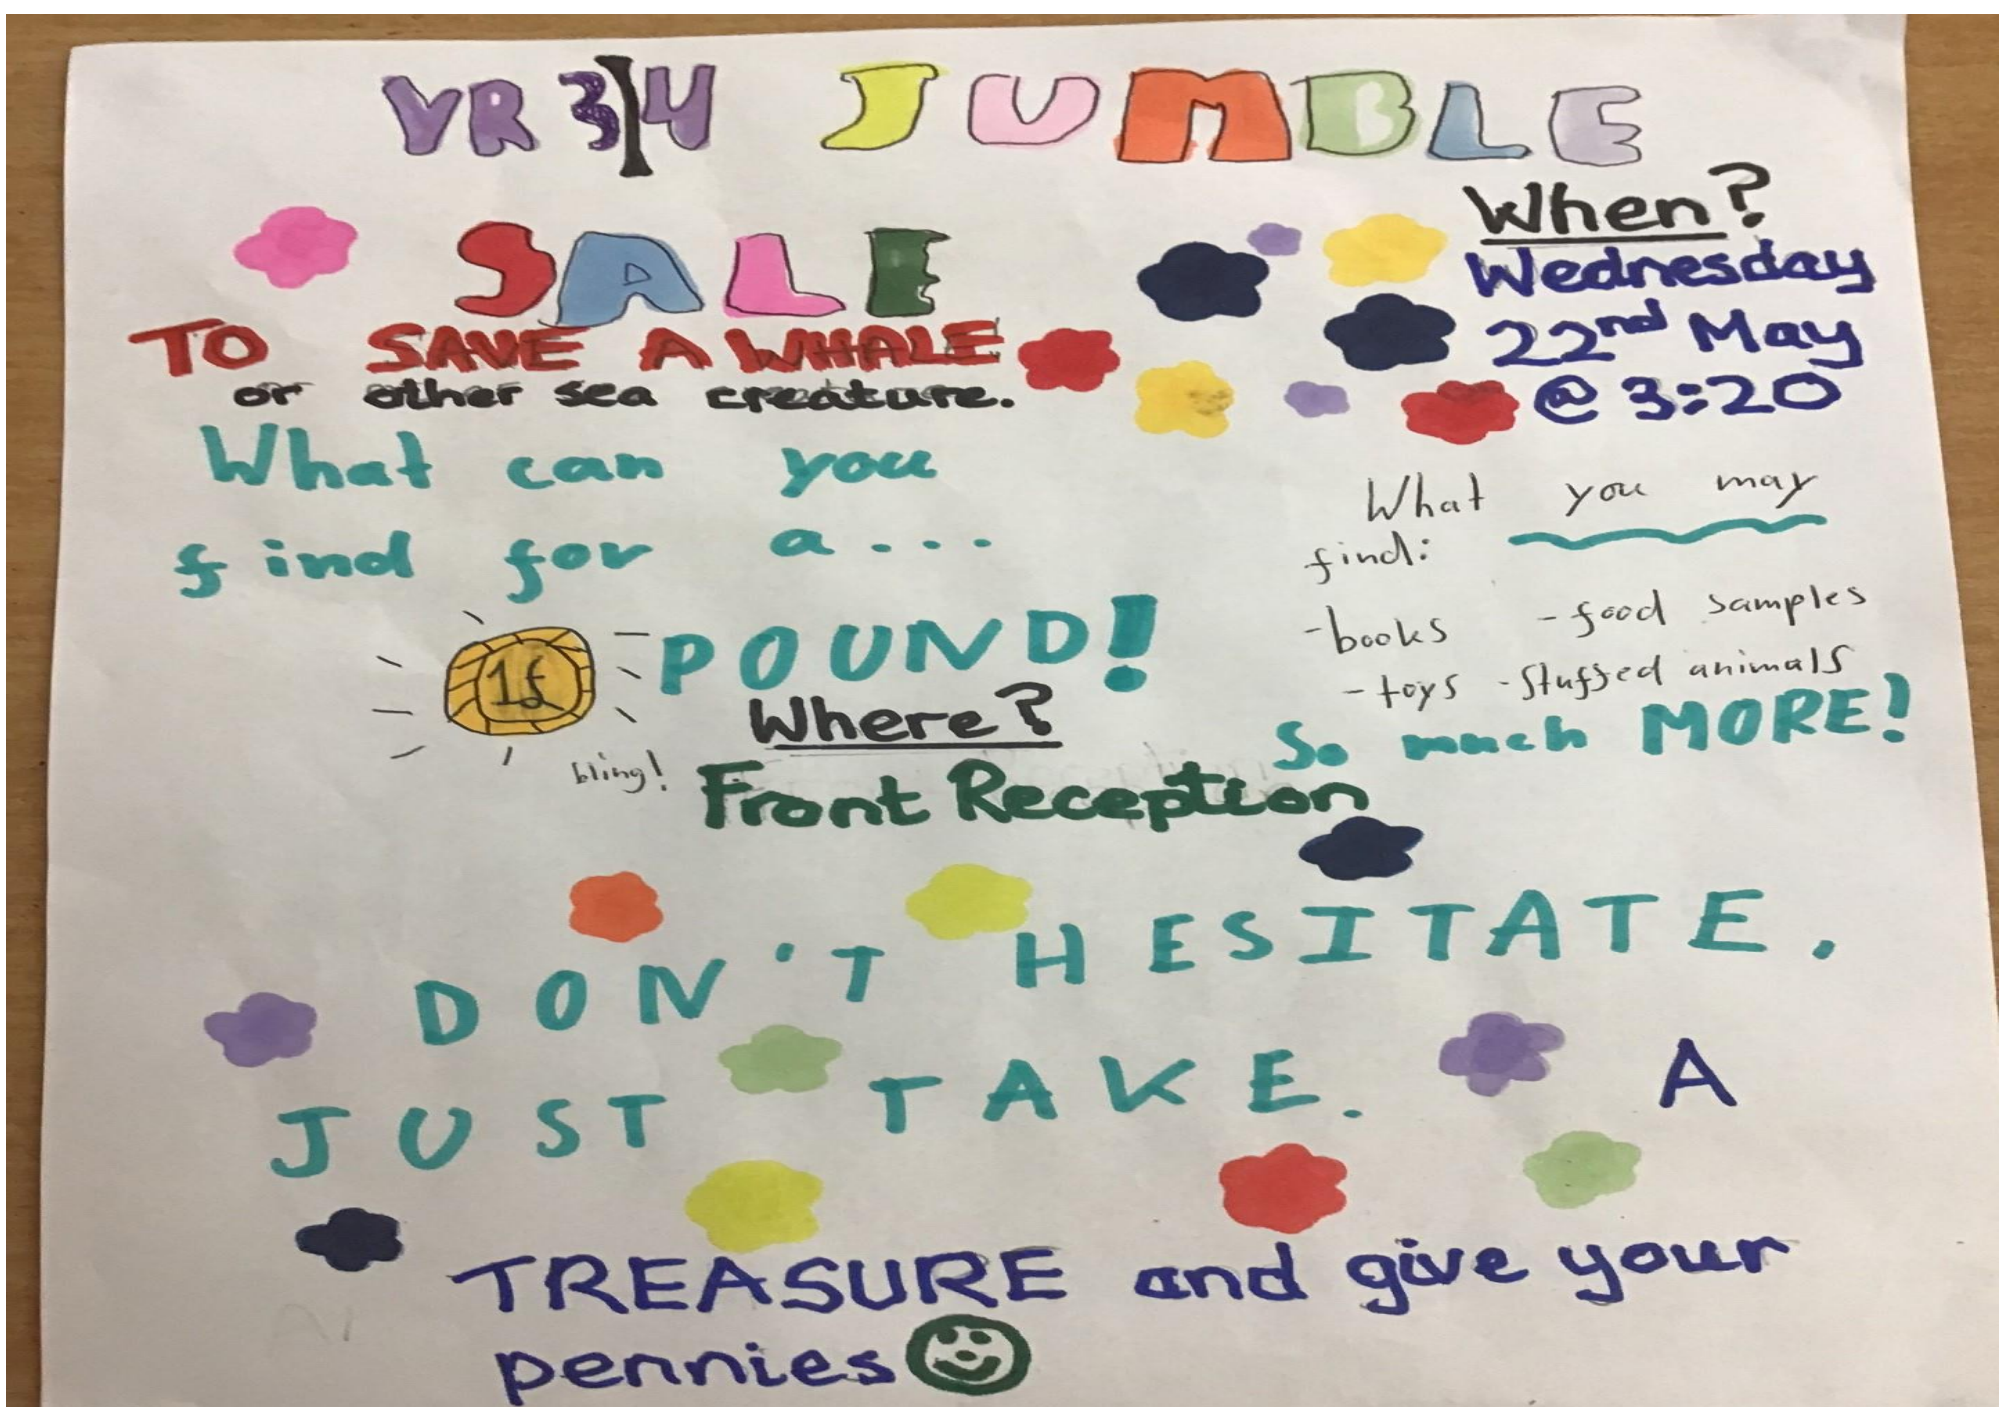 YR 3/4 JUMBLE
SALE
TO SAVE A WHALE
or other sea creature.
When?
Wednesday
22nd May
@ 3:20
What can you
find for a...
1£ POUND!
bling!
What you may
find:
-books -food samples
-toys -stuffed animals
So much MORE!
Where?
Front Reception
DON'T HESITATE.
JUST TAKE. A
TREASURE and give your
pennies